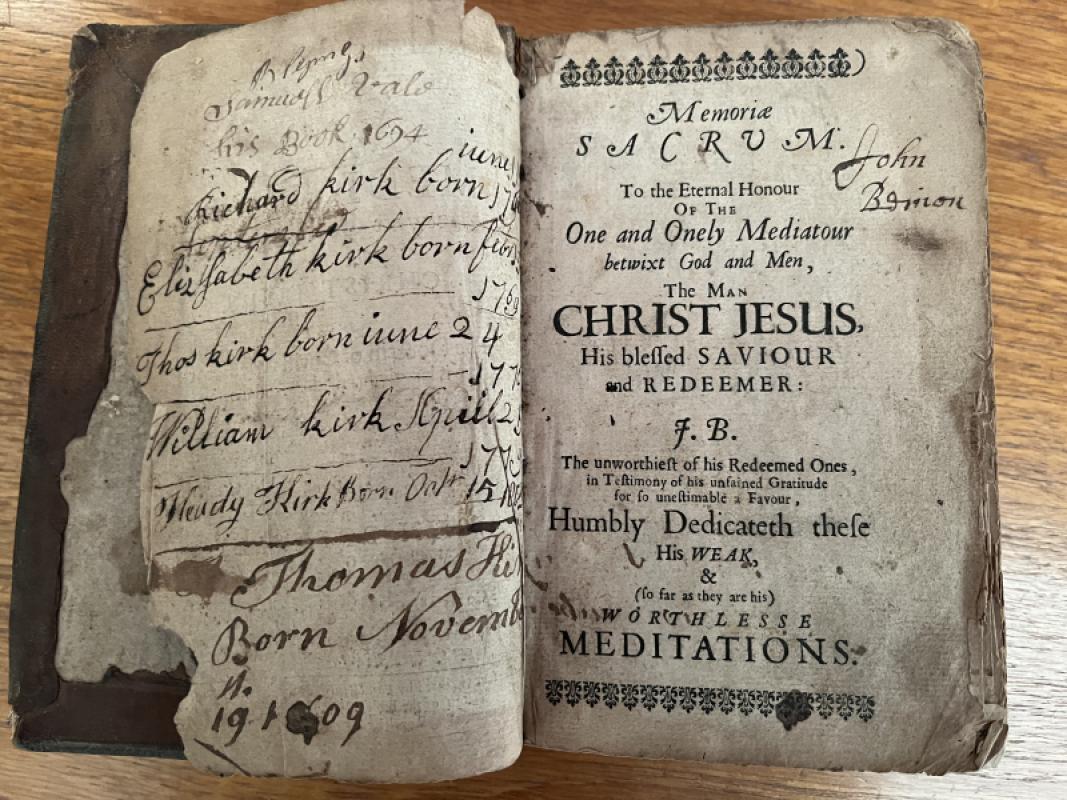 his Book 1694
iune
Richard kirk born
Elizſabeth kirk born
176
Thos kirk born iune 24
177
William kirk Aprill 2
177
Kirk Born 15
Thomas
Born November
19 1809
Memoriæ
SACRUM.
To the Eternal Honour
OF THE
One and Onely Mediatour
betwixt God and Men,
The MAN
CHRIST JESUS,
His bleſſed SAVIOUR
and REDEEMER:
J. B.
The unworthieſt of his Redeemed Ones,
in Teſtimony of his unfained Gratitude
for ſo uneſtimable a Favour,
Humbly Dedicateth theſe
His WEAK,
&
(ſo far as they are his)
WORTHLESSE
MEDITATIONS.
John